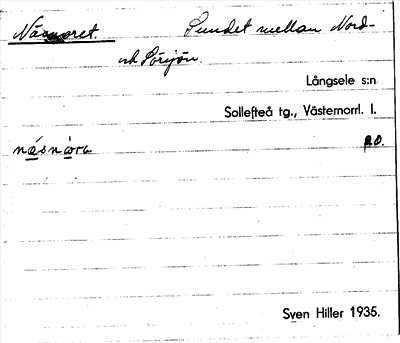 Sundet mellan Nord-
och Sörsjön.
Långsele s:n
Sollefteå tg., Västernorrl. l.
Sven Hiller 1935.